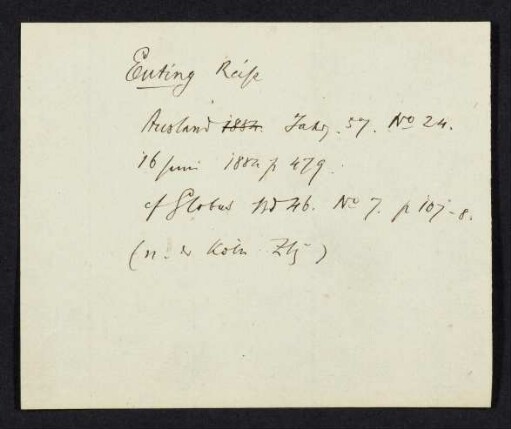 Euting Reise
Ausland 1884. Jahrg. 57. No 24.
16 Juni 1884 p 479.
cf Globus Bd 46. No 7. p 107-8.
(n. d Köln Ztg)